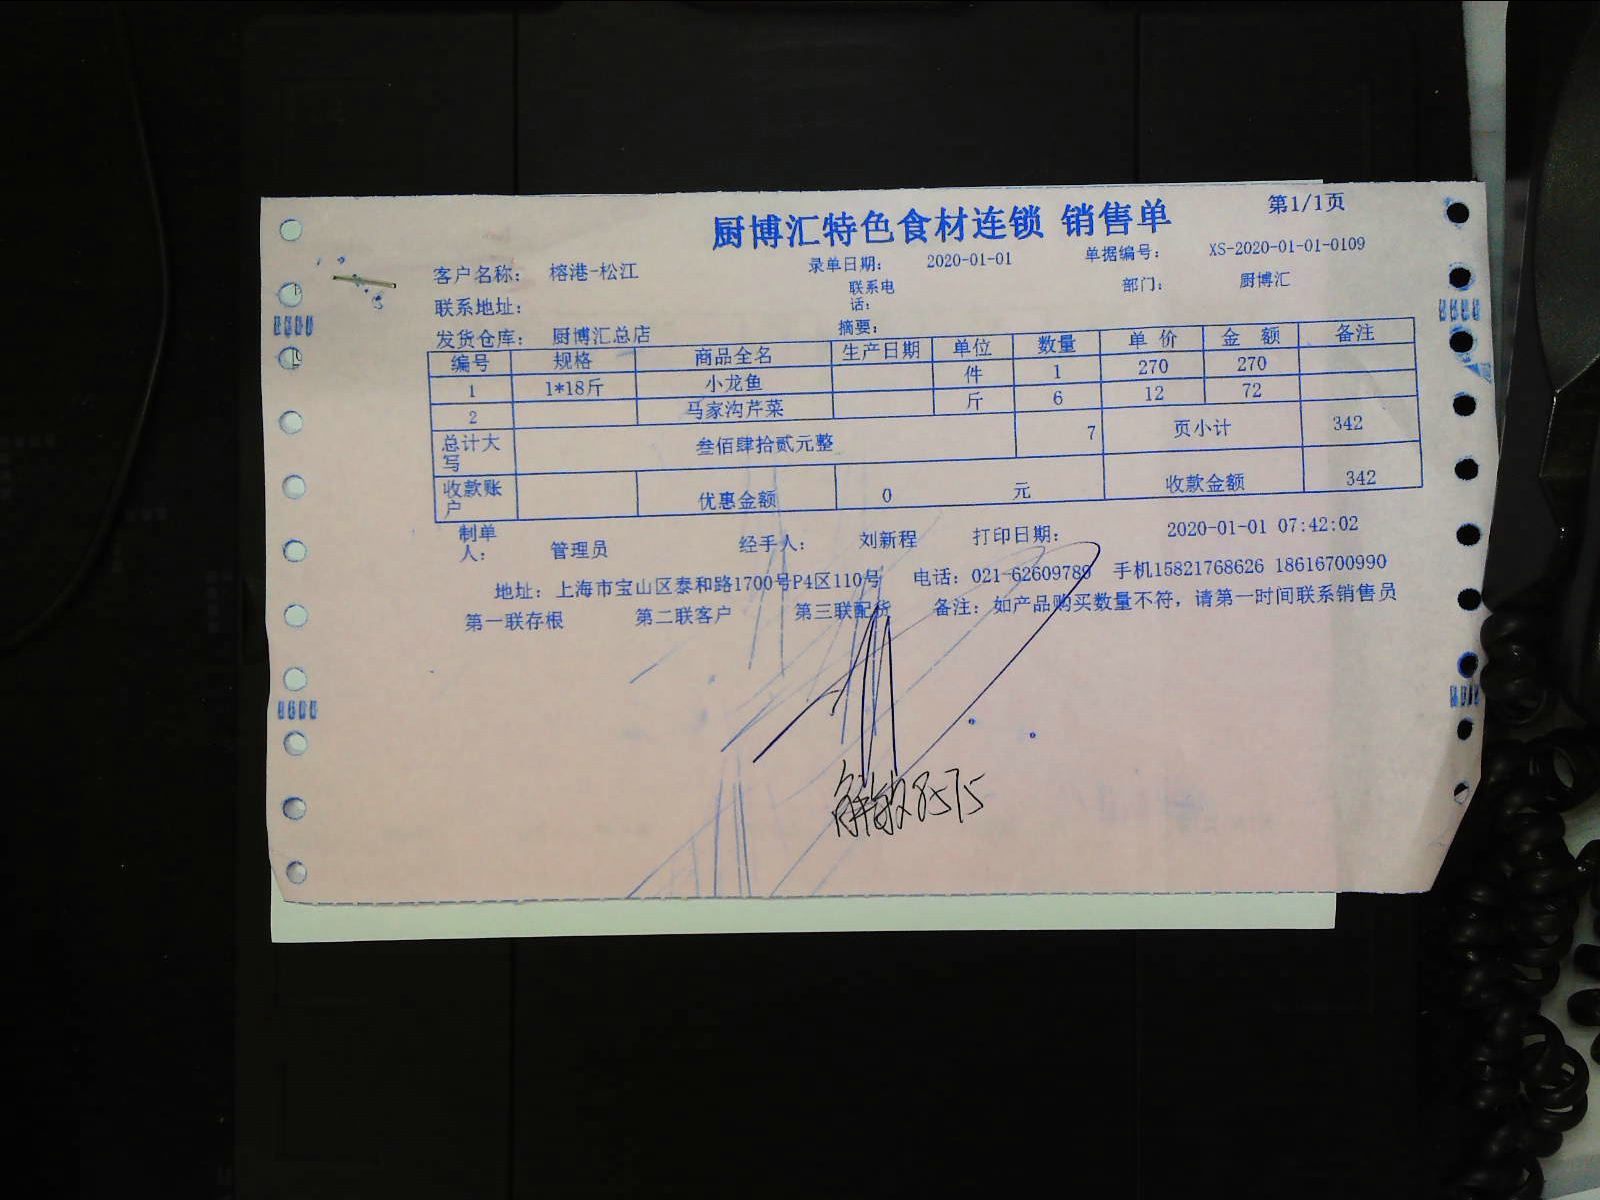 厨博汇特色食材连锁 销售单 第1/1页
客户名称： 榕港-松江 录单日期： 2020-01-01 单据编号： XS-2020-01-01-0109
联系地址： 联系电话： 部门： 厨博汇
发货仓库： 厨博汇总店 摘要：
编号 规格 商品全名 生产日期 单位 数量 单价 金额 备注
1 1*18斤 小龙鱼 件 1 270 270
2 马家沟芹菜 斤 6 12 72
总计大写 叁佰肆拾贰元整 7 页小计 342
收款账户 优惠金额 0 元 收款金额 342
制单人： 管理员 经手人： 刘新程 打印日期： 2020-01-01 07:42:02
地址：上海市宝山区泰和路1700号P4区110号 电话：021-62609789 手机15821768626 18616700990
第一联存根 第二联客户 第三联配货 备注：如产品购买数量不符，请第一时间联系销售员